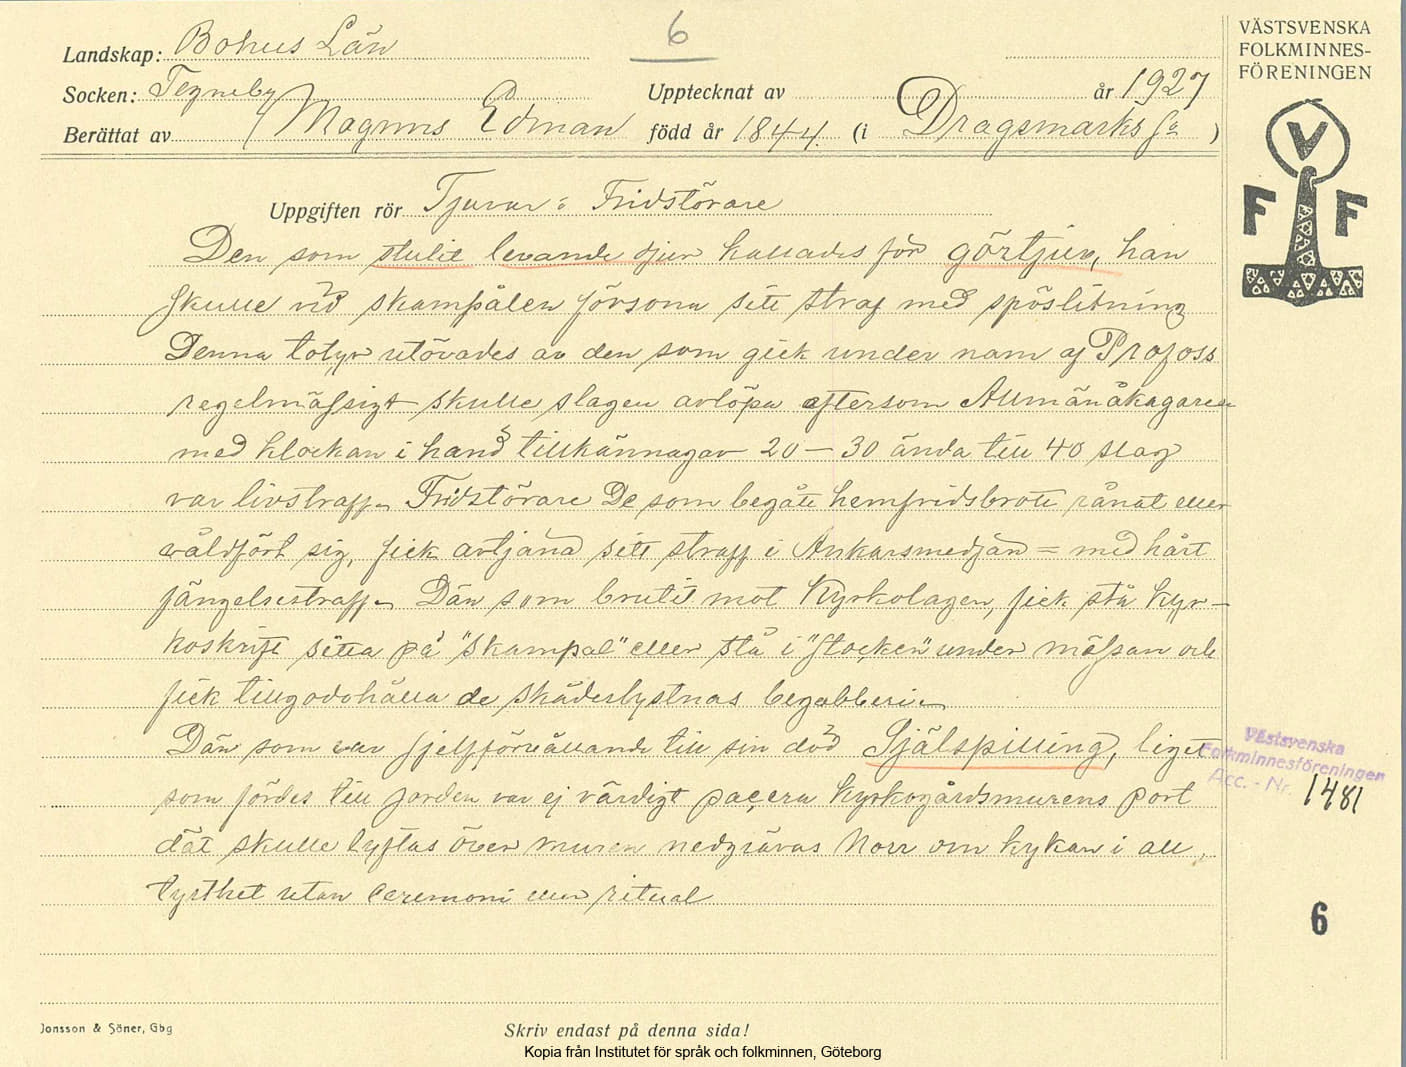 6
Landskap: Bohus Län
Socken: Tegneby
Upptecknat av
år 1927
Berättat av Magnus Edman född år 1844. (i Dragsmarks Sn )
VÄSTSVENSKA
FOLKMINNES-
FÖRENINGEN
V
F F
Uppgiften rör Tjuvar: Fridstörare
Den som stulit levande djur kallades för görtjuv, han
skulle vid skampålen försona sitt straf med spöslitning
Denna totyr utövades av den som gick under nam af Profoss
regelmässigt skulle slagen avlöpa eftersom Allmänåkagaren
med klockan i hand tillkännagav 20 — 30 ända till 40 slag
var livstraff. Fridstörare De som begått hemfridsbrott rånat eller
våldfört sig, fick avtjäna sitt straff i Ankarsmedjan = med hårt
fängelsestraff. Dän som brutit mot Kyrkolagen, fick stå kyr-
koskrift sitta på "skampal" eller stå i "stocken" under mässan och
fick tillgodohålla de skäderlystnas begabberi.
Dän som var sjelfförvållande till sin död Själspilling, liget
som fördes till jorden var ej värdigt paçera kyrkogårdsmurens port
dät skulle lyftas över muren nedgrävas Norr om kykan i all
tysthet utan ceremoni eller ritual
Västsvenska
Folkminnesföreningen
Acc. - Nr. 1481
6
Jonsson & Söner, Gbg
Skriv endast på denna sida!
Kopia från Institutet för språk och folkminnen, Göteborg